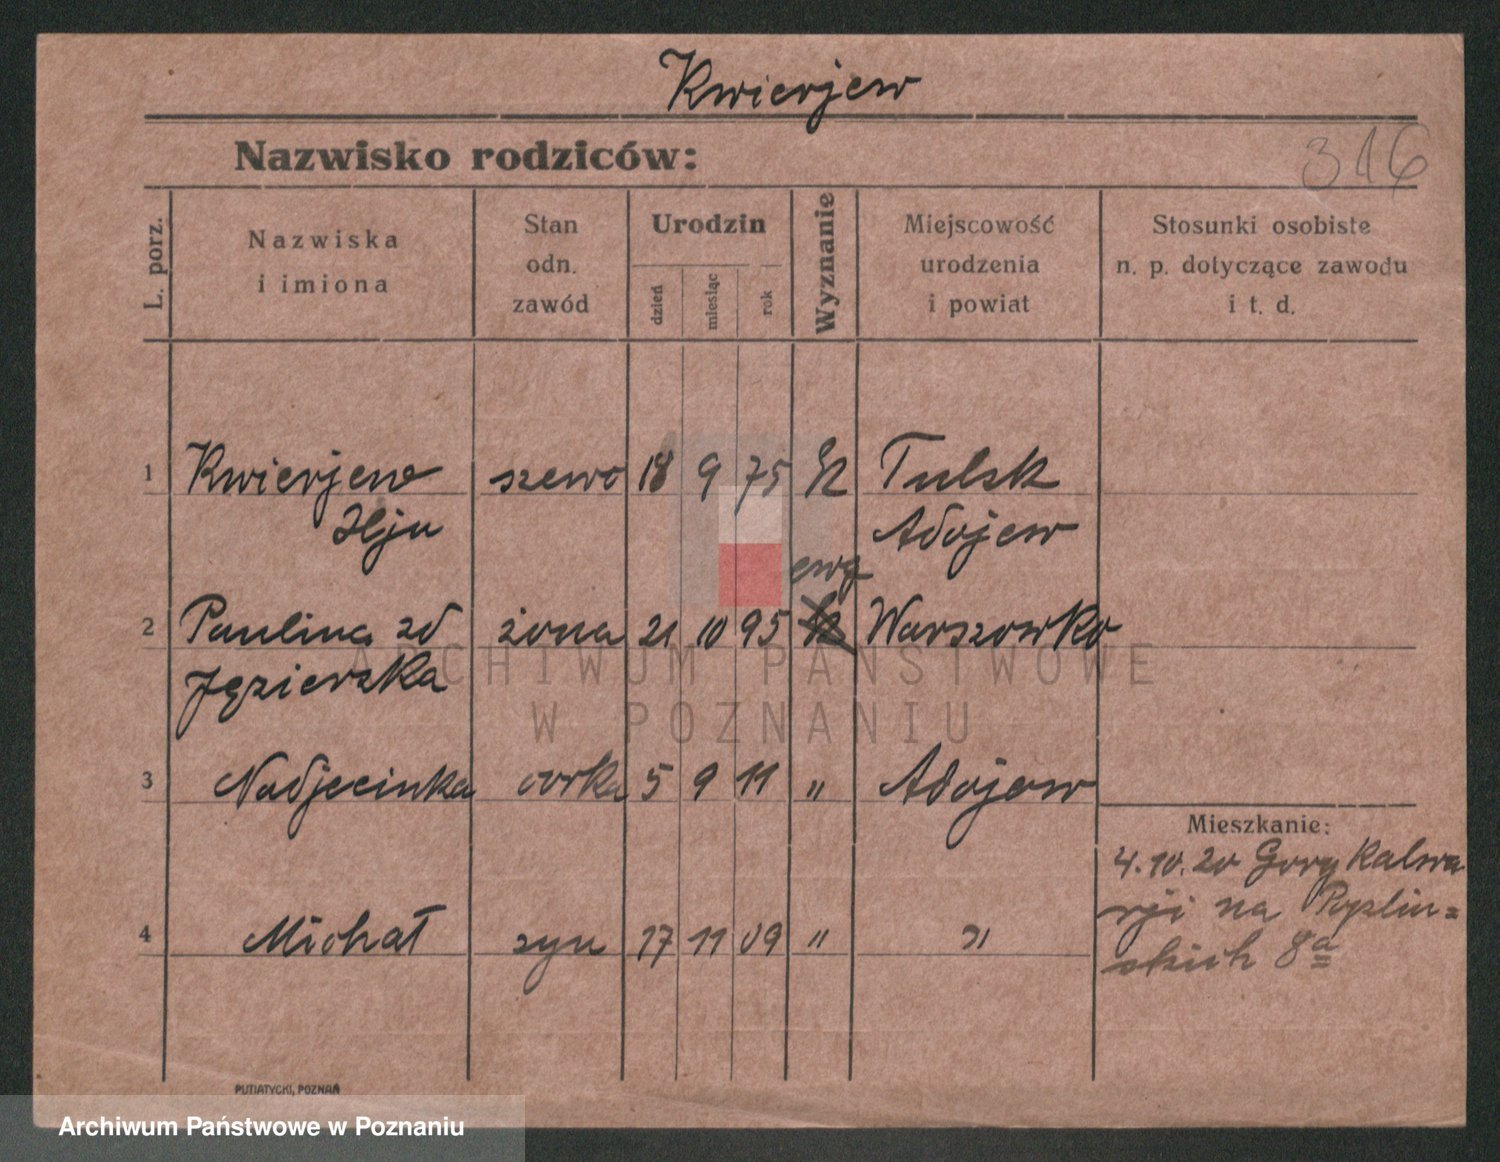 Kwierjew
Nazwisko rodziców:
316
L. porz.
Nazwiska
i imiona
Stan
odn.
zawód
Urodzin
dzień
miesiąc
rok
Wyznanie
Miejscowość
urodzenia
i powiat
Stosunki osobiste
n. p. dotyczące zawodu
i t. d.
1 Kwierjew szewc 18 9 75 Tulsk
Ilja Adojew
ewg
2 Paulina zd żona 21 10 95 Warszawka
Jęzierska
3 Nadjecinka córka 5 9 11 " Adojew
Mieszkanie:
4.10.20 Gory Kalwa
rji na
skich 8a
4 Michał syn 17 11 09 " "
PUTIATYCKI, POZNAŃ
ARCHIWUM PAŃSTWOWE
W POZNANIU
Archiwum Państwowe w Poznaniu